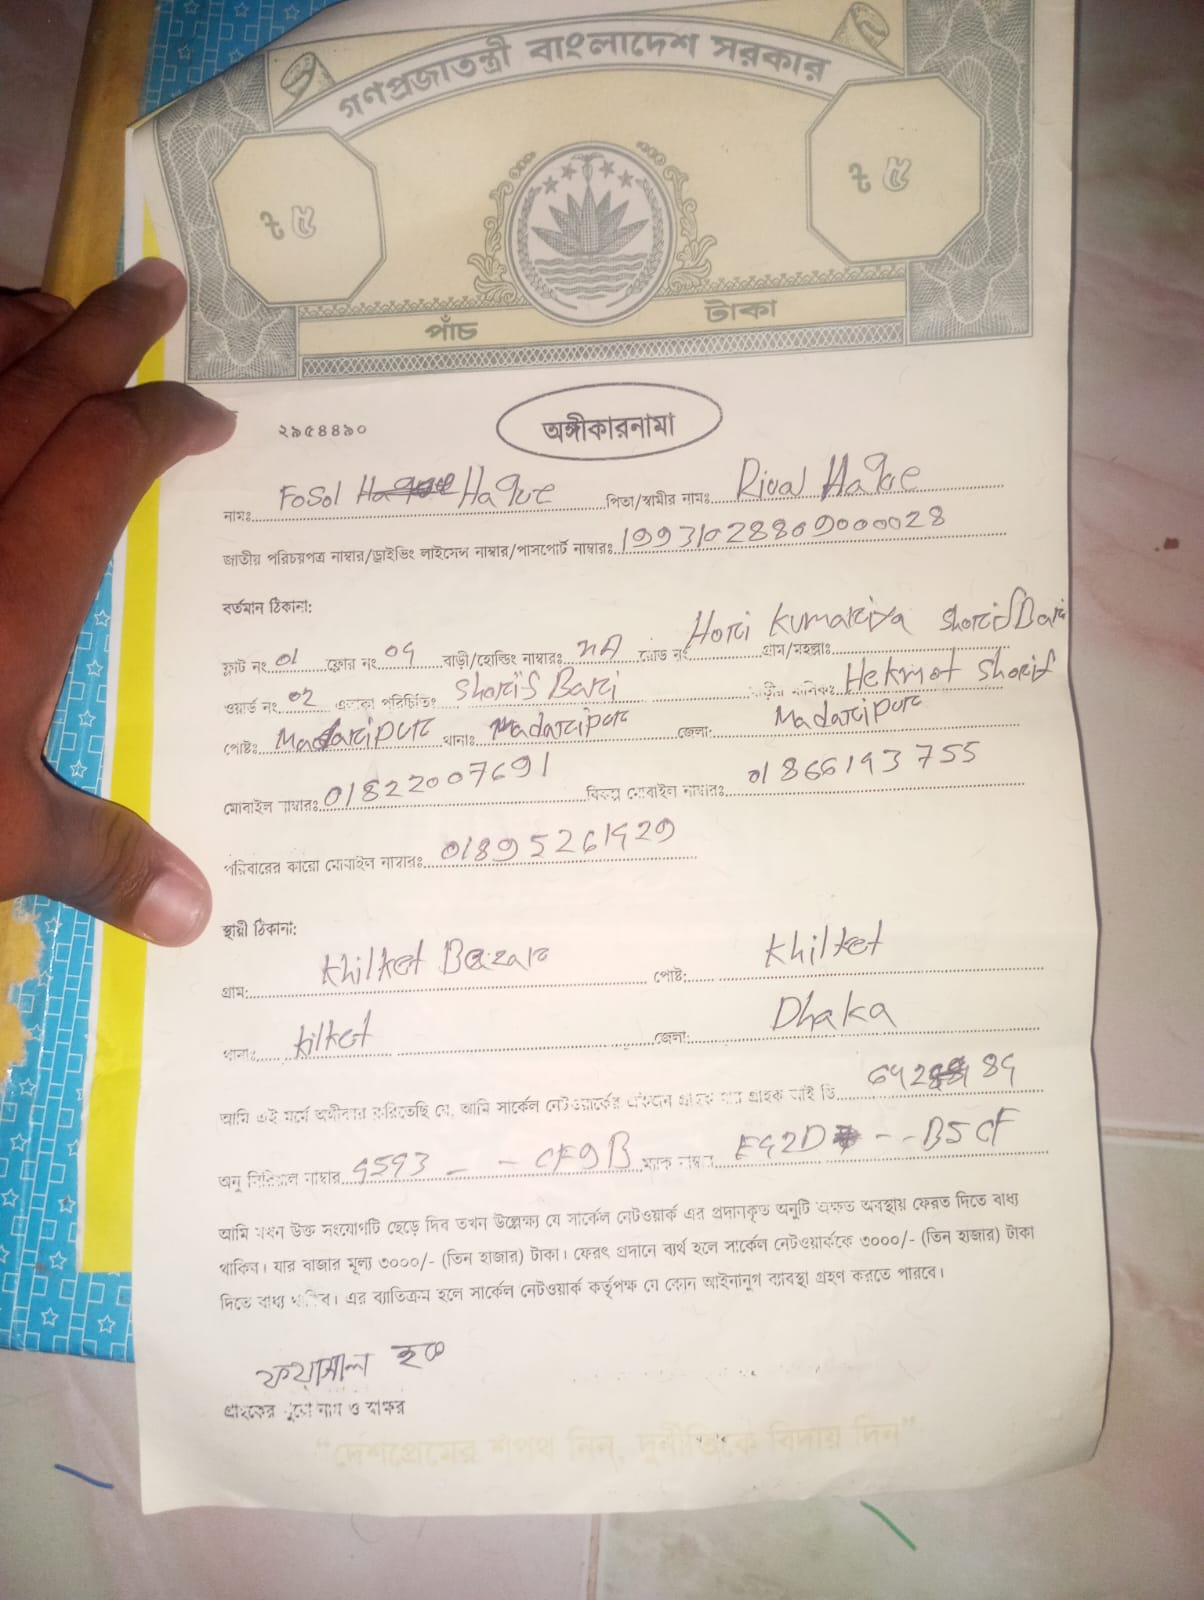 গণপ্রজাতন্ত্রী বাংলাদেশ সরকার
৳ ৫ ৳ ৫
পাঁচ টাকা
২৯৫৪৪৯০
অঙ্গীকারনামা
নামঃ Fosol Haque পিতা/স্বামীর নামঃ Rival Haque
জাতীয় পরিচয়পত্র নাম্বার/ড্রাইভিং লাইসেন্স নাম্বার/পাসপোর্ট নাম্বারঃ 19931028809000028
বর্তমান ঠিকানা:
ফ্লাট নং 01 ফ্লোর নং 04 বাড়ী/হোল্ডিং নাম্বারঃ NA রোড নং Hori Kumariya গ্রাম/মহল্লাঃ Sharif Bari
ওয়ার্ড নং 02 এলাকা পরিচিতিঃ Sharif Bari বাড়ীর মালিকঃ Hekmot Sharif
পোষ্টঃ Madaripur থানাঃ Madaripur জেলা: Madaripur
মোবাইল নাম্বারঃ 01822007691 বিকল্প মোবাইল নাম্বারঃ 01866193755
পরিবারের কারো মোবাইল নাম্বারঃ 01895261429
স্থায়ী ঠিকানা:
গ্রাম: Khilket Bazar পোষ্ট: Khilket
থানাঃ kilket জেলা: Dhaka
আমি এই মর্মে অঙ্গীকার করিতেছি যে, আমি সার্কেল নেটওয়ার্কের একজন গ্রাহক যার গ্রাহক আই ডি
অনু সিরিয়াল নাম্বার 4543 - - CF9B ম্যাক নাম্বার E42D - - B5CF
আমি যখন উক্ত সংযোগটি ছেড়ে দিব তখন উল্লেক্ষ্য যে সার্কেল নেটওয়ার্ক এর প্রদানকৃত অনুটি অক্ষত অবস্থায় ফেরত দিতে বাধ্য
থাকিব। যার বাজার মূল্য ৩০০০/- (তিন হাজার) টাকা। ফেরৎ প্রদানে ব্যর্থ হলে সার্কেল নেটওয়ার্ককে ৩০০০/- (তিন হাজার) টাকা
দিতে বাধ্য থাকিব। এর ব্যতিক্রম হলে সার্কেল নেটওয়ার্ক কর্তৃপক্ষ যে কোন আইনানুগ ব্যবস্থা গ্রহণ করতে পারবে।
ফয়সাল হক
গ্রাহকের পুরো নাম ও স্বাক্ষর
"দেশপ্রেমের শপথ নিন, দুর্নীতিকে বিদায় দিন"